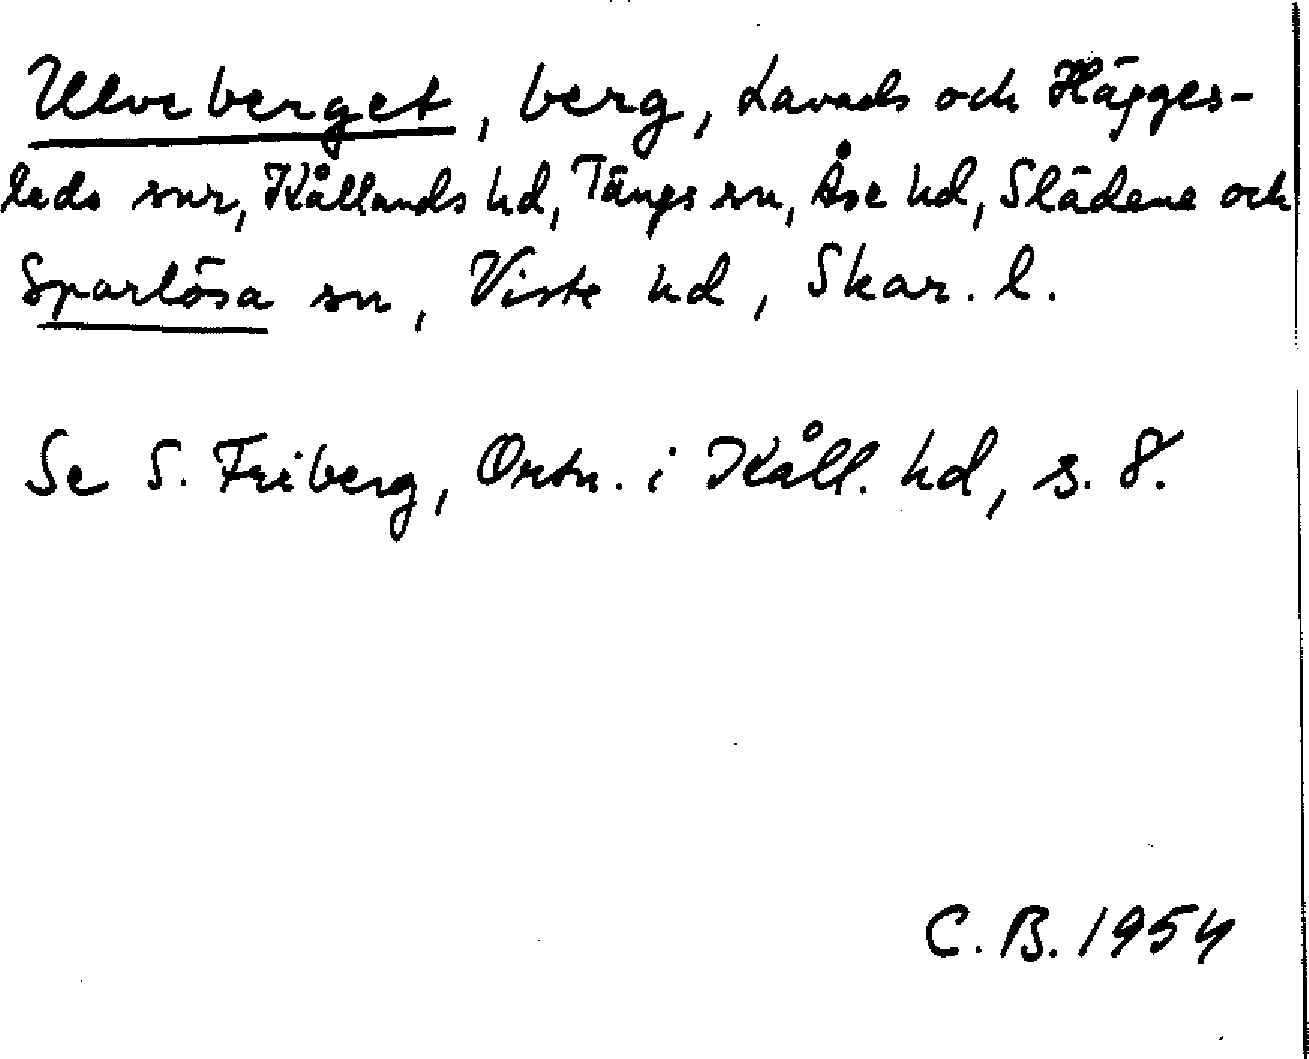 Ulveberget, berg, Lavads och Hägges-
leds snr, Kållands hd, Tängs sn, Åse hd, Slädene och
Sparlösa sn, Viste hd, Skar. l.
Se S. Friberg, Ortn. i Kåll. hd, s. 8.
C. B. 1954